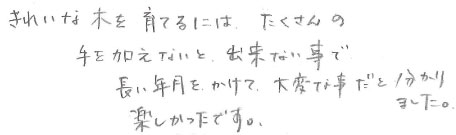 きれいな木を育てるには、たくさんの
手を加えないと、出来ない事で
長い年月を、かけて、大変な事だと分かり
ました。
楽しかったです。